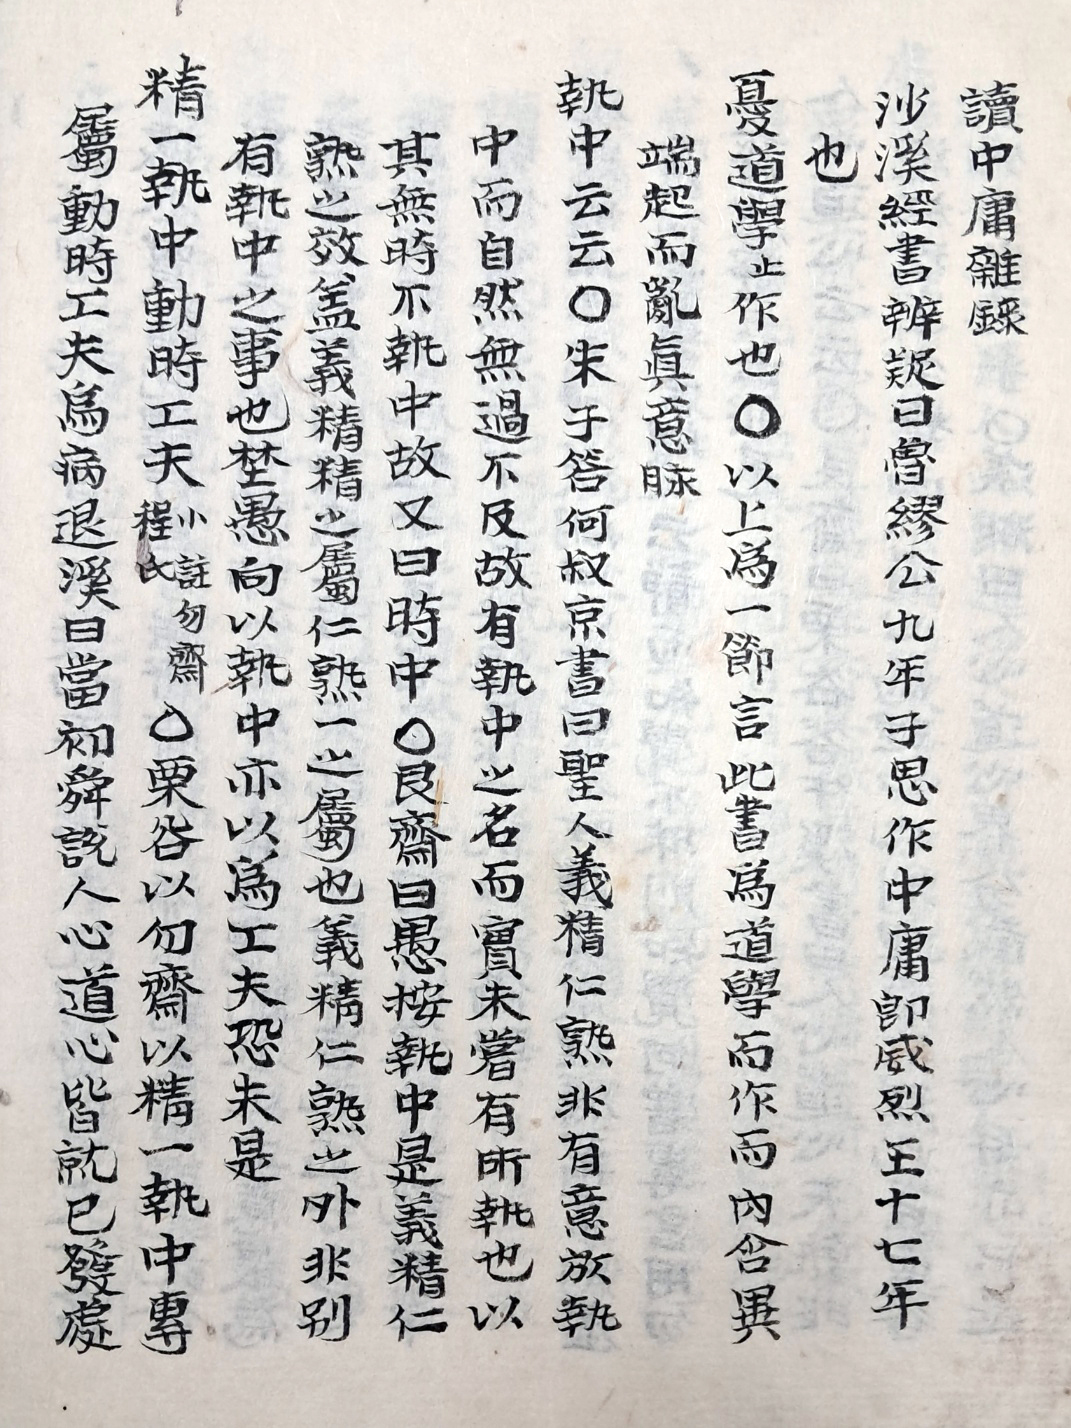 讀中庸雜錄
沙溪經書辨疑曰魯繆公九年子思作中庸卽威烈王十七年
也
憂道學止作也〇以上爲一節言此書爲道學而作而內含異
端起而亂眞意脉
執中云云〇朱子答何叔京書曰聖人義精仁熟非有意於執
中而自然無過不及故有執中之名而實未嘗有所執也以
其無時不執中故又曰時中〇艮齋曰愚按執中是義精仁
熟之效盖義精精之屬仁熟一之屬也義精仁熟之外非别
有執中之事也埜愚向以執中亦以爲工夫恐未是
精一執中動時工夫小註勿齋程氏〇栗谷以勿齋以精一執中專
屬動時工夫爲病退溪曰當初舜說人心道心皆就已發處